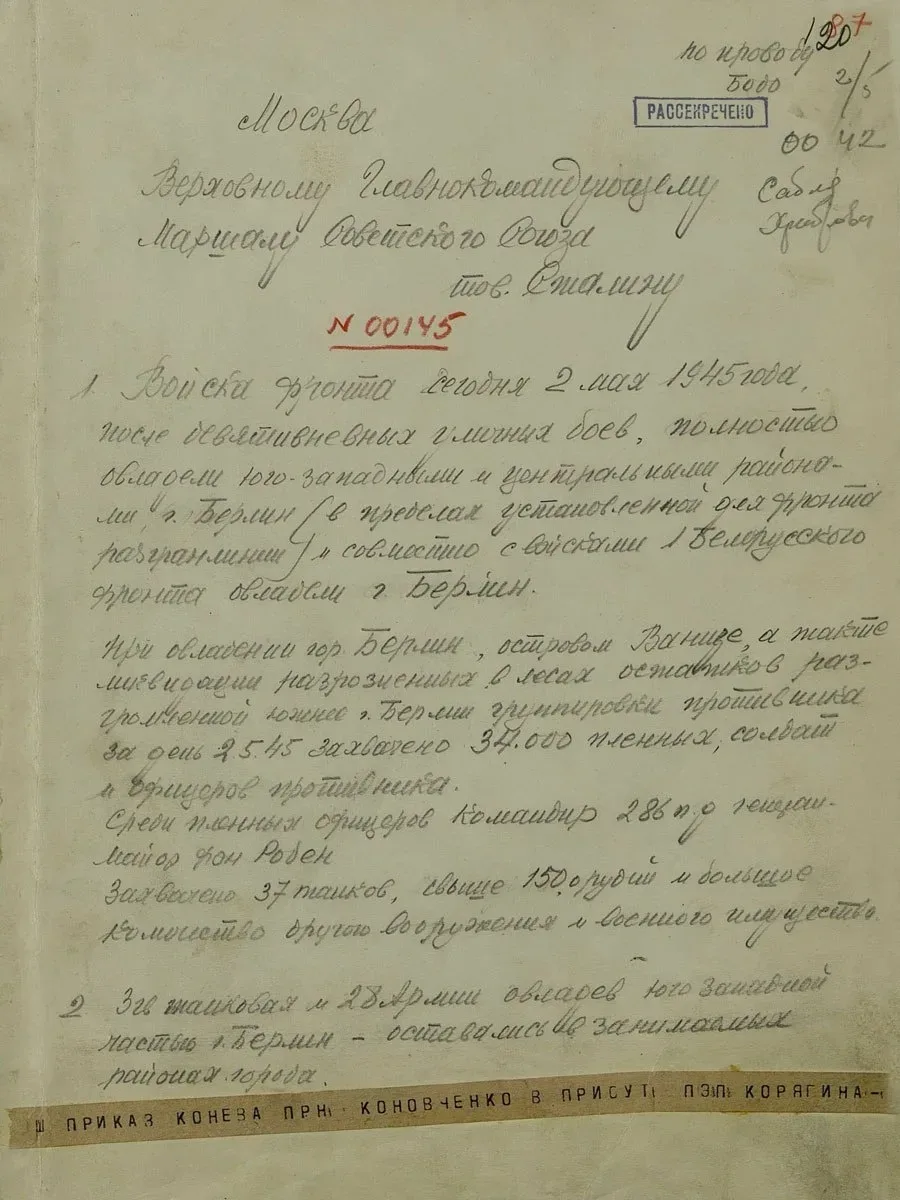 87
120
по проводу
Бодо
2/5
РАССЕКРЕЧЕНО
00 42
Москва
Верховному Главнокомандующему
Сабля
Маршалу Советского Союза
тов. Сталину
N 00145
1. Войска фронта сегодня 2 мая 1945 года,
после девятидневных уличных боев, полностью
овладели юго-западными и центральными района-
ми г. Берлин (в пределах установленной для фронта
разгранлинии) и совместно с войсками 1 Белорусского
фронта овладели г. Берлин.
При овладении гор. Берлин, островом Ванзее, а также
ликвидации разрозненных в лесах остатков раз-
громленной южнее г. Берлин группировки противника
за день 2.5.45 захвачено 34.000 пленных, солдат
и офицеров противника.
Среди пленных офицеров командир 286 п.д генерал-
майор фон Робен
Захвачено 37 танков, свыше 150 орудий и большое
количество другого вооружения и военного имущества.
2 3 гв танковая и 28 Армии овладев юго западной
частью г. Берлин – оставались в занимаемых
районах города.
Ш ПРИКАЗ КОНЕВА ПРН КОНОВЧЕНКО В ПРИСУТ ПЗП КОРЯГИНА-